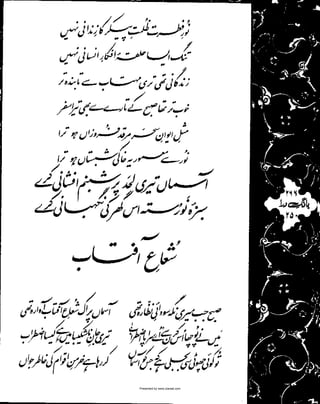 نورِ فطرت ظلمتِ پیکر کا زندانی نہیں
تنگ ایسا حلقۂ افکارِ انسانی نہیں
زندگانی تھی تری مہتاب سے تابندہ تر
خوب تر تھا صبح کے تارے سے بھی تیرا سفر
مثلِ ایوانِ سحر مرقد فروزاں ہو ترا
نور سے معمور یہ خاکی شبستاں ہو ترا
آسماں تیری لحد پر شبنم افشانی کرے
سبزۂ نورستہ اس گھر کی نگہبانی کرے
شعاعِ آفتاب
صبح جب میری نگہ سودائیِ نظارہ تھی آسماں پر اک شعاعِ آفتاب آوارہ تھی
میں نے پوچھا اس کرن سے اے سراپا اضطراب تیری جانِ ناشکیبا میں ہے کیسا اضطراب
تو کوئی چھوٹی سی بجلی ہے کہ جس کو آسماں کر رہا ہے خرمنِ اقوام کی خاطر جواں
بانگِ درا
۲۵۰
Presented by www.ziaraat.com